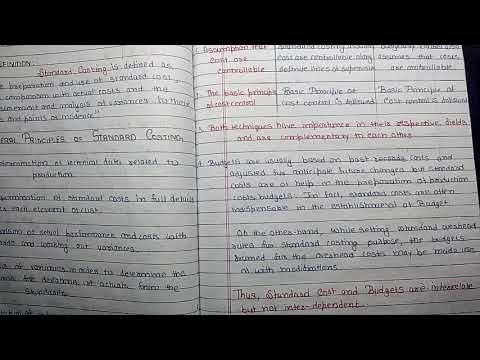 DEFINITION:
Standard Costing is defined as
the preparation and use of standard cost,
comparison with actual costs and the
measurement and analysis of variances to their
and points of incidence"
GENERAL PRINCIPLES OF STANDARD COSTING
determination of technical data related to
production.
of standard costs in full details
each element of cost.
of actual performance and costs with
and working out variances.
of variances in order to determine the
for deviations of actuals from the
standards.
1. Assumption that
cost are
controllable
Standard costing usually
cost are controllable along
definite lines of supervision
Budgetary control also
assumes that costs
are controllable
The basic principle
of cost control
Basic Principle of
cost control is followed
Basic Principle of
cost control is followed
3. Both techniques have importance in their respective fields
and are complementary to each other.
4. Budgets are usually based on past records costs and
adjusted for anticipate future changes but standard
costs are of help in the preparation of production
costs budgets. In fact, standard costs are often
indespensable in the establishment of Budget.
On the other hand, while setting standard overhead
rates for standard costing purpose, the budgets
framed for the overhead costs may be made use
of with modifications.
Thus, Standard Cost and Budgets are interrelate
but not inter-dependent.